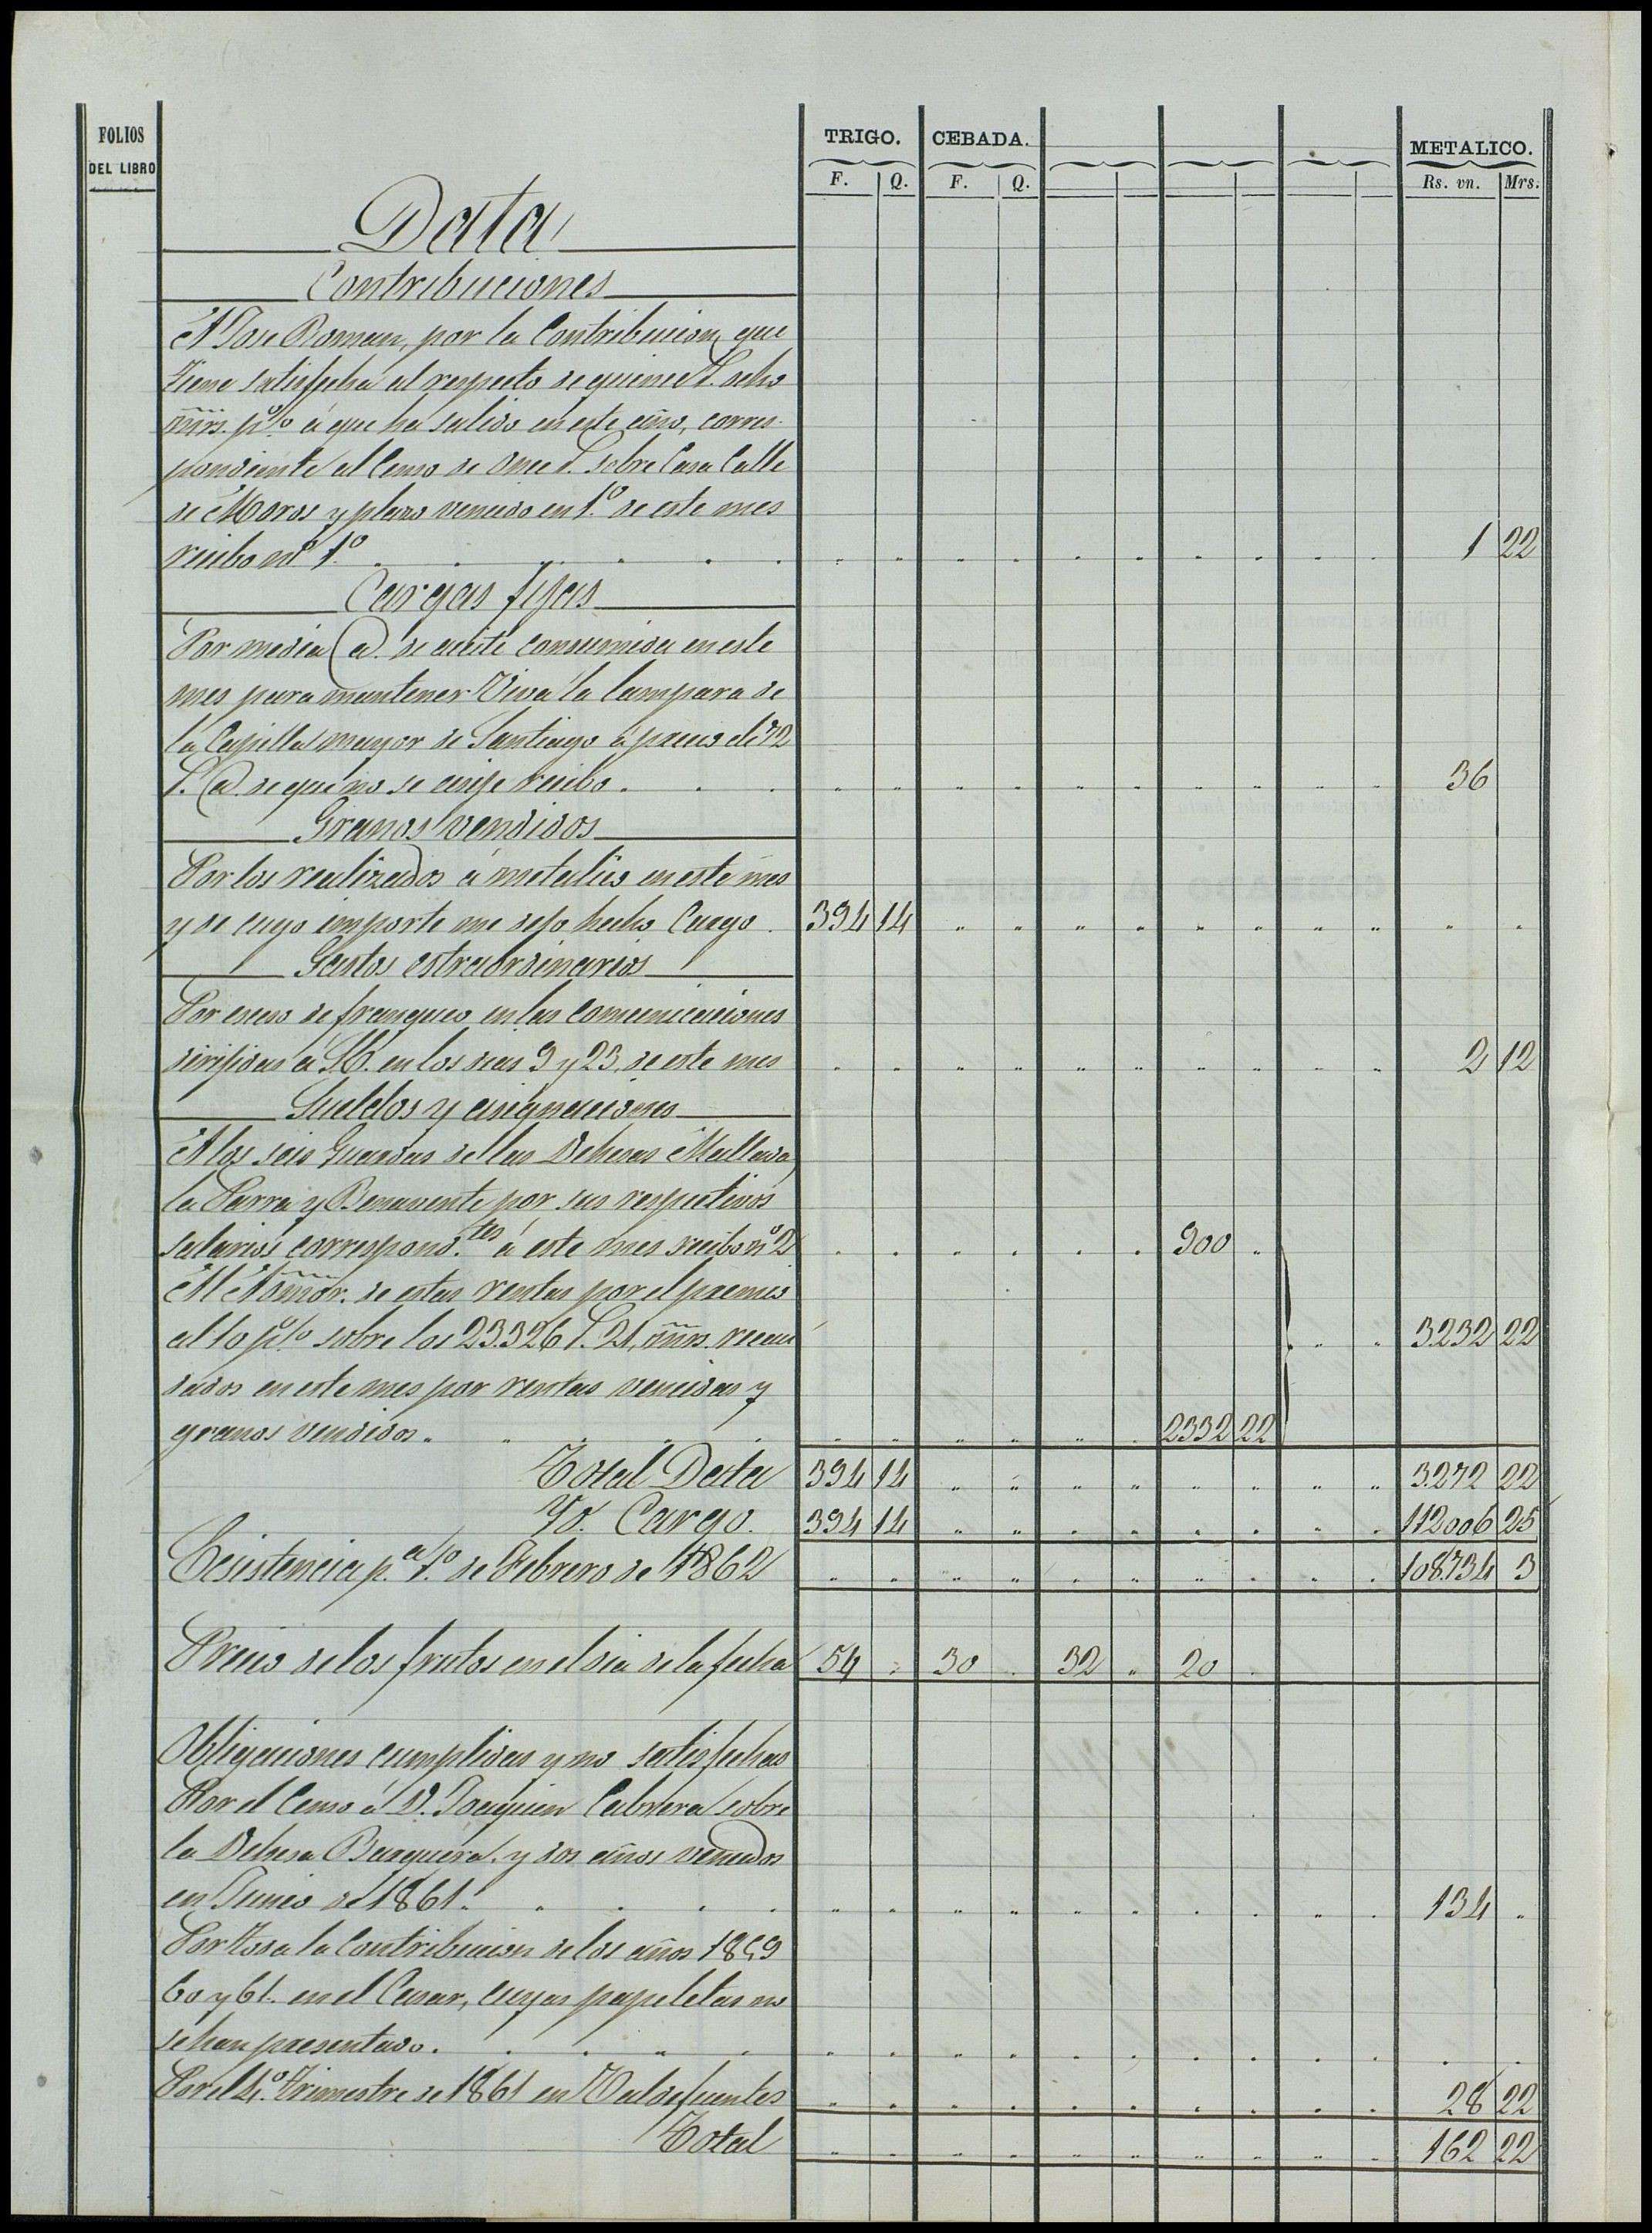 FOLIOS
DEL LIBRO
TRIGO. CEBADA. METALICO.
F. Q. F. Q. Rs. vn. Mrs.
Data
Contribuciones
A Jose Roman, por la Contribucion que
tiene satisfecha al respecto de quince r.s ocho
mrs. p% á que ha salido en este año, corres-
pondiente al Censo de once r.s sobre Casa Calle
de Moros y plazo vencido en 1º de este mes
recibo nº 1º 1 22
Cargas fijas
Por media @ de aceite consumida en este
mes para mantener viva la lampara de
la Capilla mayor de Santiago á precio de 72
r.s @ de que no se exije recibo 36
Granos vendidos
Por los realizados á metalico en este mes
y de cuyo importe me dejo hecho Cargo 394 14
Gastos estraordinarios
Por esceso de franqueo en las comunicaciones
dirijidas á M. en los dias 9 y 23 de este mes 2 12
Sueldos y asignaciones
A los seis Guardas de las Dehesas Mallada,
la Parra y Benavente por sus respectivos
salarios correspond.tes á este mes recibo nº 2 900
Al Admor. de estas rentas por el premio
al 10 p% sobre los 23.326 r.s 21 mrs. recau 3.232 22
dados en este mes por rentas vencidas y
granos vendidos 2332 22
Total Data 394 14 3.272 22
Yd. Cargo 394 14 112.006 25
Ecsistencia p.a 1º de Febrero de 1862 108.734 3
Precio de los frutos en el dia de la fecha 54 30 32 20
Obligaciones cumplidas y no satisfechas
Por el Censo á D. Joaquin Cabrera sobre
la Dehesa Barquera y dos años vencidos
en Junio de 1861 134
Por toda la Contribucion de los años 1859
60 y 61 en el Casar, cuyas papeletas no
se han presentado
Por el 4º trimestre de 1861 en Valdefuentes 28 22
Total 162 22